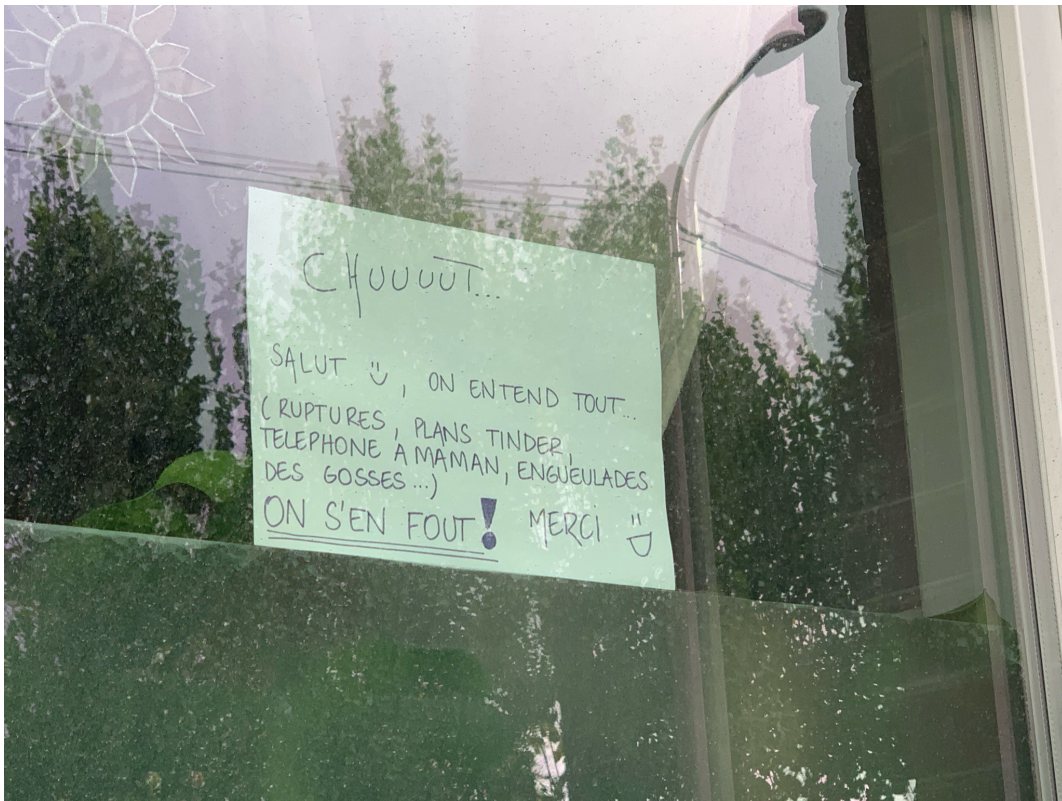 CHUUUUT...
SALUT, ON ENTEND TOUT...
(RUPTURES, PLANS TINDER,
TELEPHONE A MAMAN, ENGUEULADES
DES GOSSES...)
ON S'EN FOUT! MERCI